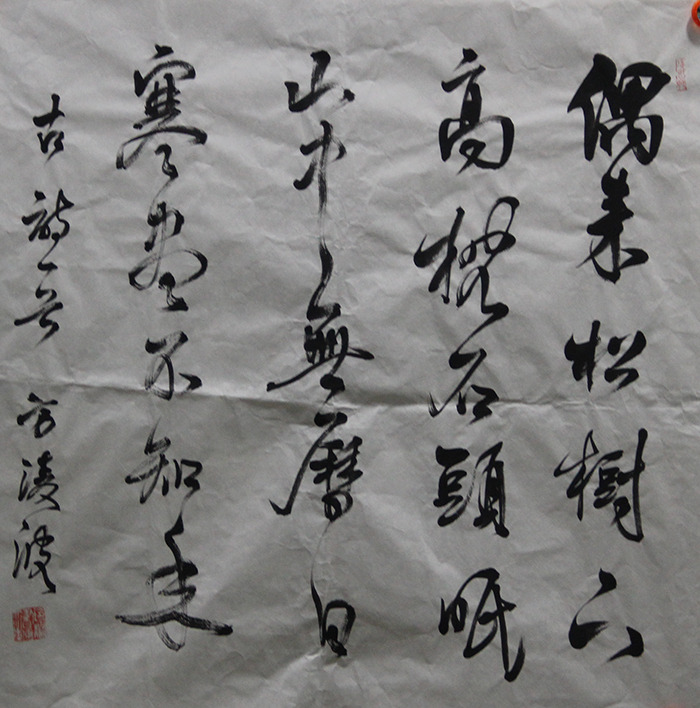 偶来松樹下
高枕石頭眠
山中無曆日
寒盡不知年
古詩一首 方凌波